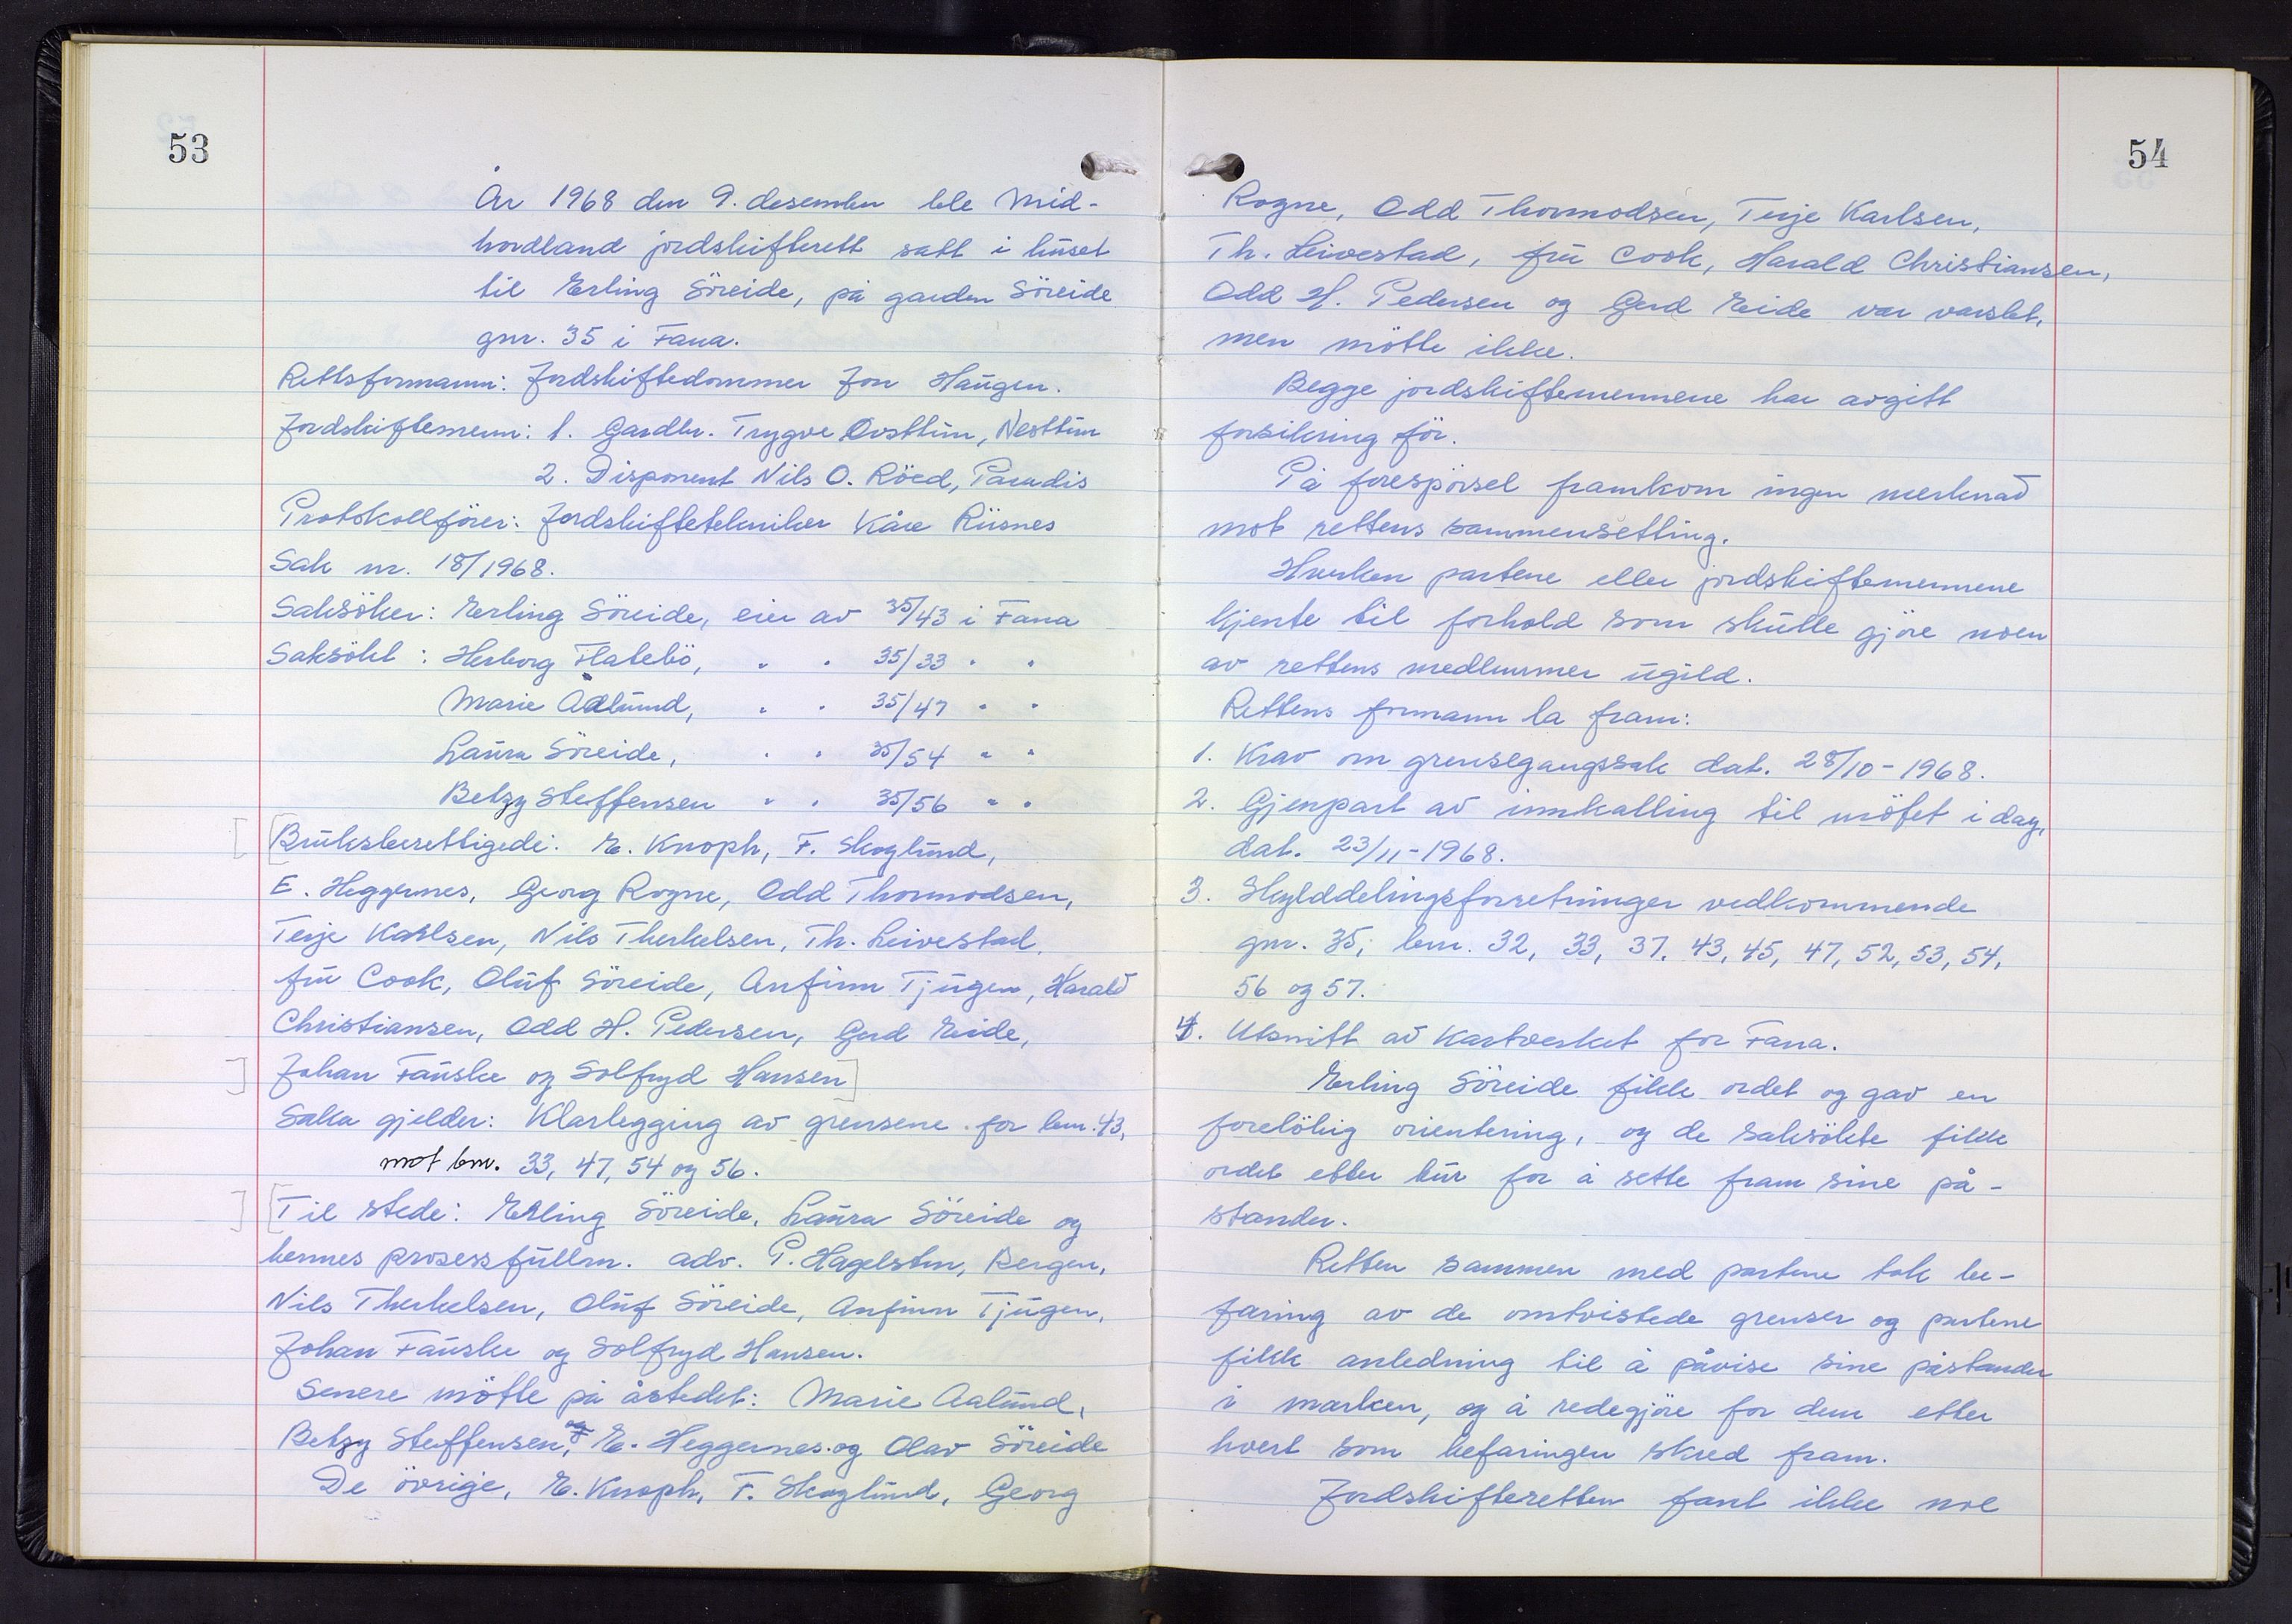 53
År 1968 den 9. desember ble Mid-
hordland jordskifterett satt i huset
til Erling Söreide, på garden Söreide
gnr. 35 i Fana.
Rettsformann: Jordskiftedommer Jon Haugen.
Jordskiftemenn: 1. Gardbr. Trygve Ovsttun, Nesttun
2. Disponent Nils O. Röed, Paradis
Protokollförer: Jordskiftetekniker Kåre Riisnes
Sak nr. 18/1968.
Saksöker: Erling Söreide, eier av 35/43 i Fana
Saksökt: Herborg Flatebö, " " 35/33 " "
Marie Aalund, " " 35/47 " "
Laura Söreide, " " 35/54 " "
Betzy Steffensen " " 35/56 " "
[ [Bruksberettigede: E. Knoph, F. Skoglund,
E. Heggernes, Georg Rogne, Odd Thormodsen,
Terje Karlsen, Nils Therkelsen, Th. Leivestad,
fru Cook, Oluf Söreide, Anfinn Tjugen, Harald
Christiansen, Odd H. Pedersen, Gerd Eide,
] Johan Fauske og Solfryd Hansen]
Saka gjelder: Klarlegging av grensene for bnr. 43,
mot bnr. 33, 47, 54 og 56.
] [Til stede: Erling Söreide, Laura Söreide og
hennes prosessfullm. adv. P. Hagelsten, Bergen,
Nils Therkelsen, Oluf Söreide, Anfinn Tjugen,
Johan Fauske og Solfryd Hansen.
Senere mötte på åstedet: Marie Aalund,
Betzy Steffensen, og E. Heggernes og Olav Söreide
De övrige, E. Knoph, F. Skoglund, Georg
54
Rogne, Odd Thormodsen, Terje Karlsen,
Th. Leivestad, fru Cook, Harald Christiansen,
Odd H. Pedersen og Gerd Eide var varslet,
men mötte ikke.
Begge jordskiftemennene har avgitt
forsikring för.
På forespörsel framkom ingen merknad
mot rettens sammensetting.
Hverken partene eller jordskiftemennene
kjente til forhold som skulle gjöre noen
av rettens medlemmer ugild.
Rettens formann la fram:
1. Krav om grensegangssak dat. 28/10-1968.
2. Gjenpart av innkalling til mötet i dag,
dat. 23/11-1968.
3. Skylddelingsforretninger vedkommende
gnr. 35, bnr. 32, 33, 37, 43, 45, 47, 52, 53, 54,
56 og 57.
4. Utsnitt av Kartverket for Fana.
Erling Söreide fikk ordet og gav en
forelöbig orientering, og de saksökte fikk
ordet etter tur for å sette fram sine på-
stander.
Retten sammen med partene tok be-
faring av de omtvistede grenser og partene
fikk anledning til å påvise sine påstander
i marken, og å redegjöre for dem etter
hvert som befaringen skred fram.
Jordskifteretten fant ikke noe